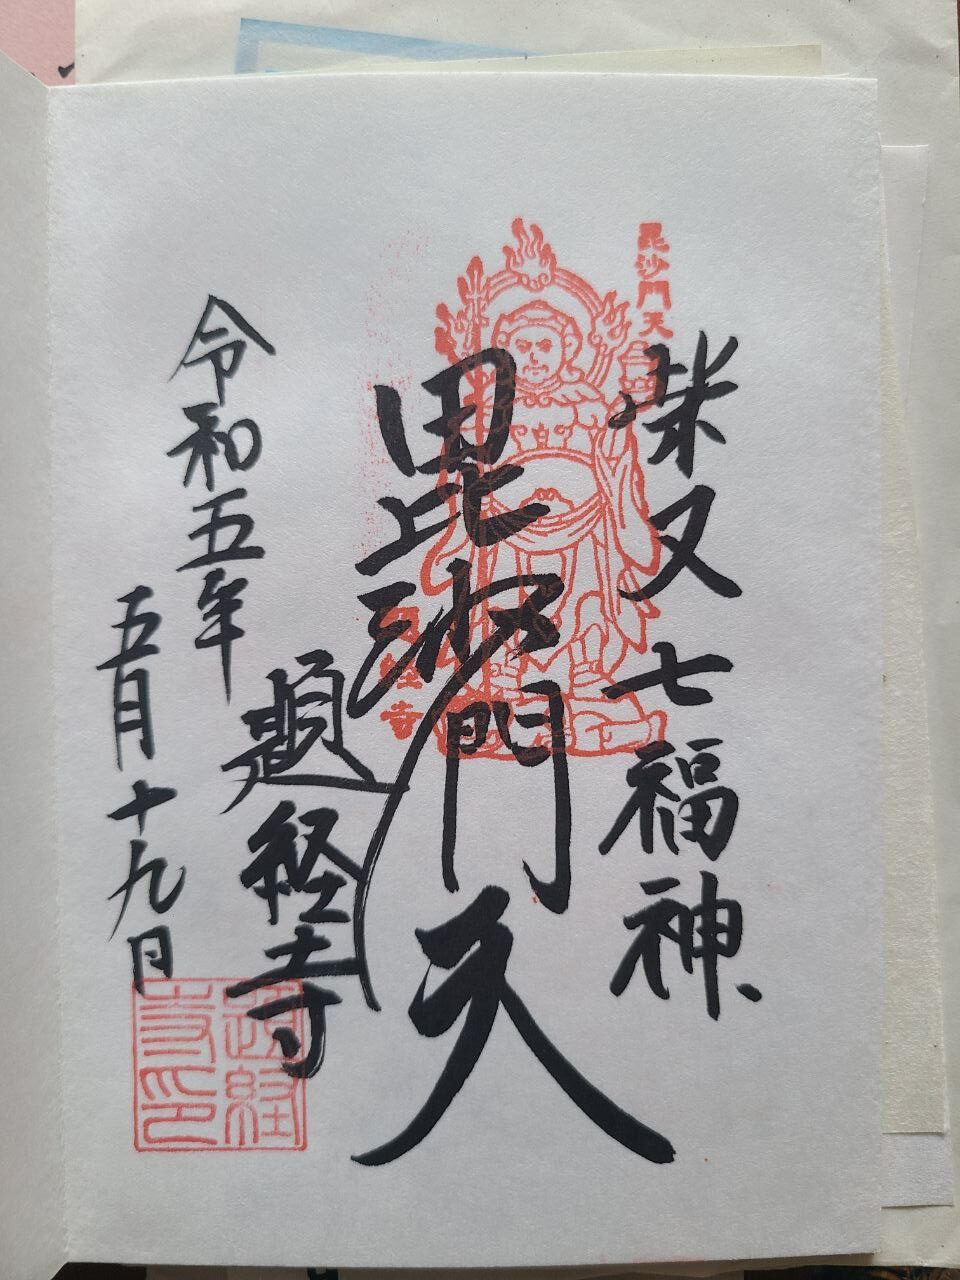 毘沙門天
柴又七福神
毘沙門天
題経寺
令和五年
五月十九日
題経寺印